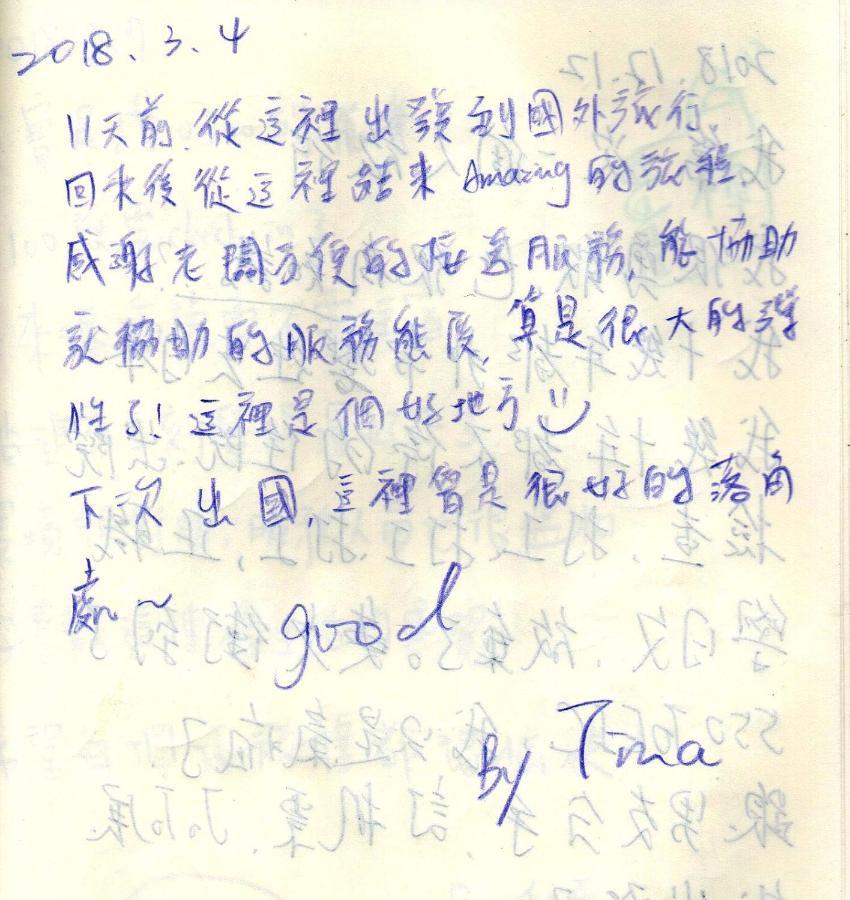 2018.3.4
11天前,從這裡出發到國外旅行,
回來後從這裡結束Amazing的旅程.
感謝老闆方便的接送服務,能協助
就協助的服務態度,算是很大的彈
性了!這裡是個好地方
下次出國,這裡會是很好的落角
處~
good
By Tina